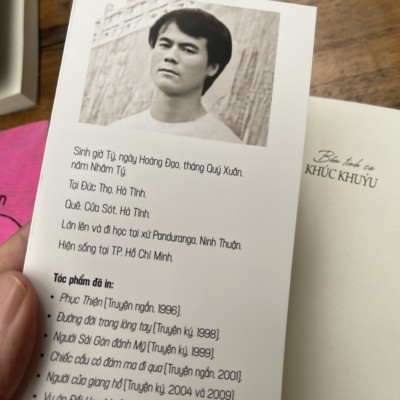 Sinh giờ Tý, ngày Hoàng Đạo, tháng Quý Xuân,
năm Nhâm Tý.
Tại Đức Thọ, Hà Tĩnh.
Quê: Cửa Sót, Hà Tĩnh.
Lớn lên và đi học tại xứ Panduranga, Ninh Thuận.
Hiện sống tại TP. Hồ Chí Minh.
Tác phẩm đã in:
• Phục Thiện (Truyện ngắn, 1996).
• Đường đời trong lòng tay (Truyện ký, 1998).
• Người Sài Gòn đánh Mỹ (Truyện ký, 1999).
• Chiếc cầu có đám ma đi qua (Truyện ngắn, 2001).
• Người của giang hồ (Truyện ký, 2004 và 2009)
• Vụ án
Bản tình ca
KHÚC KHUỶU